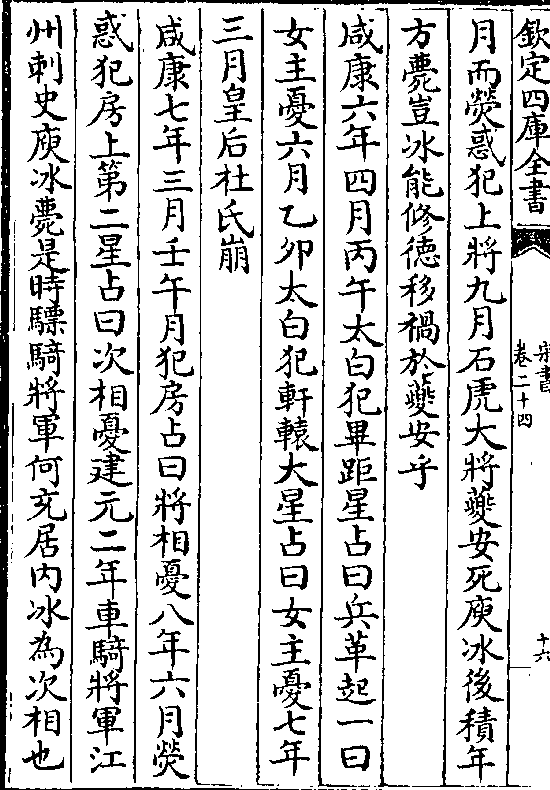 欽定四庫全書
宋書
卷二十四
十六
月而熒惑犯上將九月石虎大將夔安死庾冰後積年
方薨豈冰能修德移禍於夔安乎
咸康六年四月丙午太白犯畢距星占曰兵革起一曰
女主憂六月乙卯太白犯軒轅大星占曰女主憂七年
三月皇后杜氏崩
咸康七年三月壬午月犯房占曰將相憂八年六月熒
惑犯房上第二星占曰次相憂建元二年車騎將軍江
州刺史庾冰薨是時驃騎將軍何充居内冰為次相也